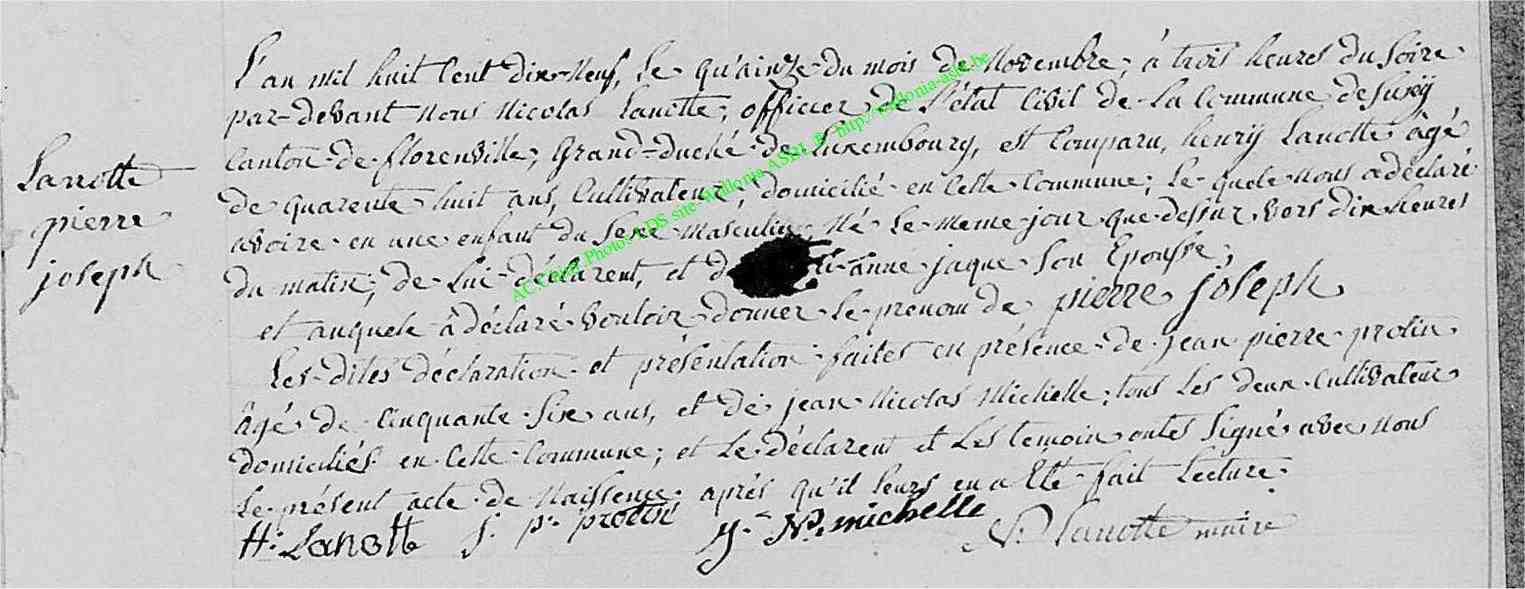 Lanotte
pierre
joseph
L'an mil huit Cent dix-Neuf, Le qu'ainze du mois de Novembre, à trois heures du Soire
par-devant nous Nicolas Lanotte, officier de L'état Civil de La Commune de Suxÿ
Canton de florenville, Grand-duché de Luxembourg, est Comparu, henrÿ Lanotte âgé
de quarente huit ans, Cultivateur, domicilié en Cette Commune; Le quele nous a déclaré
avoire en une enfant du Sexe masculin, Né Le meme jour que dessur vers dix heures
du matin, de Lui déclarent, et d anne jaque Son Epousse,
et auquele à déclaré vouloir donner Le prenom de pierre joseph
Les dites déclaration et présentation faites en présence de jean pierre protin
âgé de Cinquante Six ans, et de jean Nicolas Michelle, tous Les deux Cultivateur
domiciliés en Cette Commune; et Le déclarent et Les temoin ontes Signé avec nous
Le présent acte de Naissence après qu'il Leurs en a Eté fait Lecture.
H: Lanotte J. p. protin J. N. michelle N. Lanotte maire
Photos site Wallonia ASBL http://wallonia-asbl.be